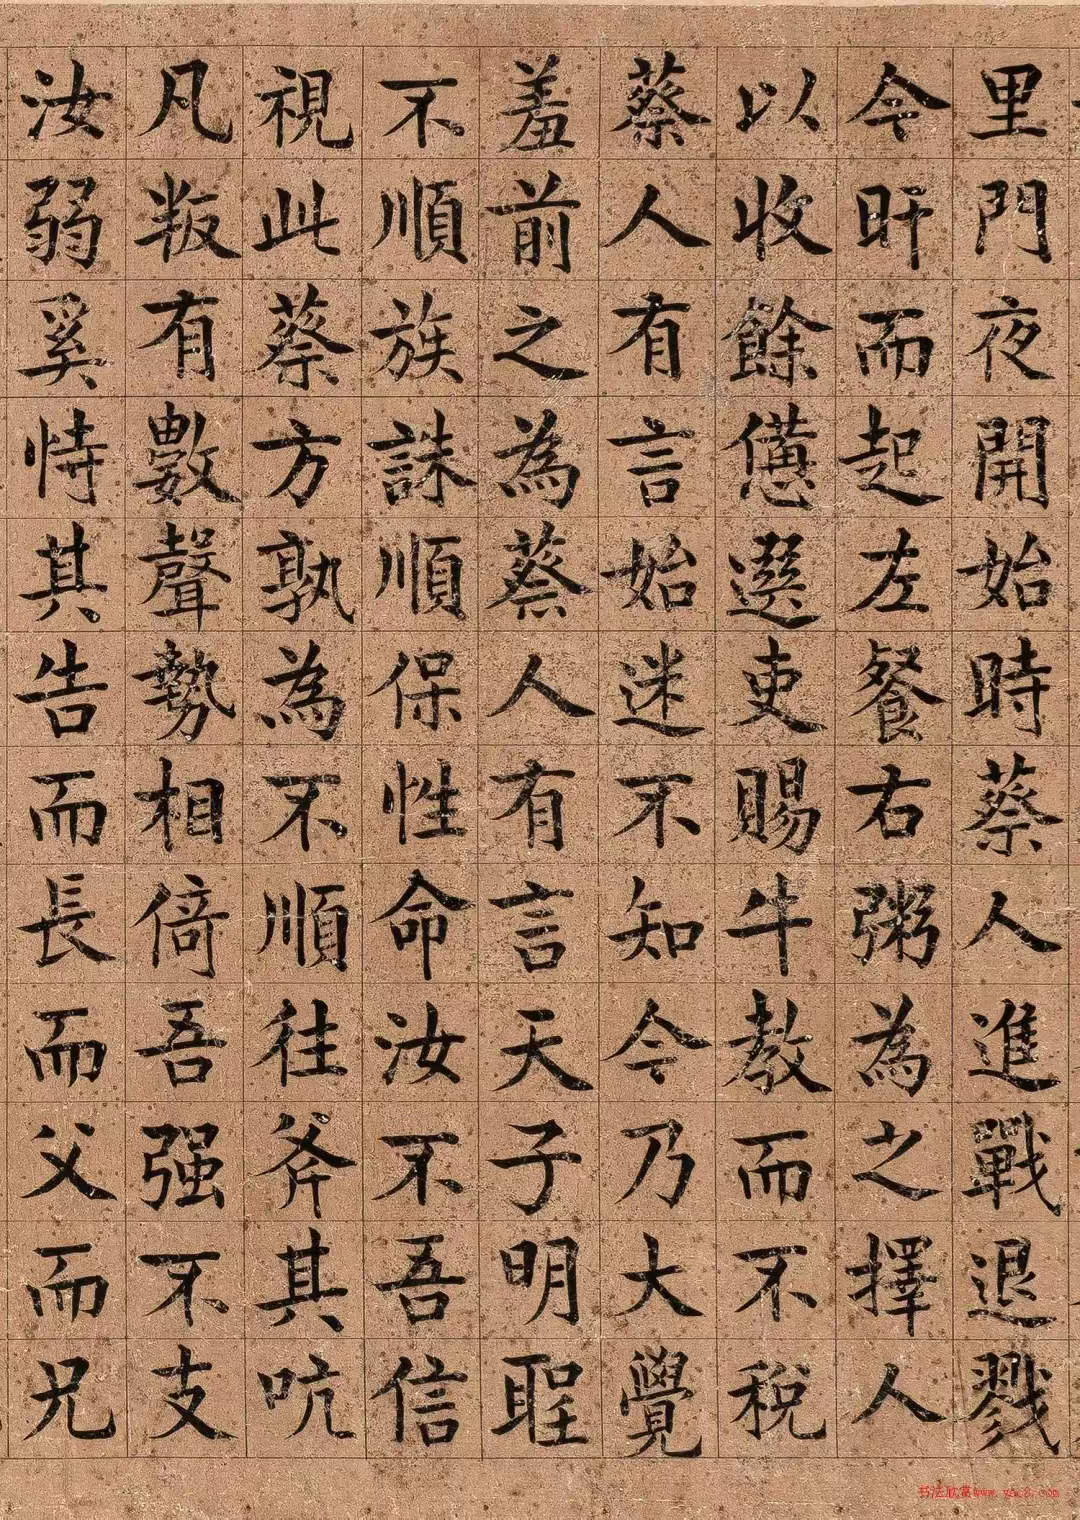 里門夜開始時蔡人進戰退戮
今旰而起左餐右粥為之擇人
以收餘憊選吏賜牛教而不稅
蔡人有言始迷不知今乃大覺
羞前之為蔡人有言天子明聖
不順族誅順保性命汝不吾信
視此蔡方孰為不順往斧其吭
凡叛有數聲勢相倚吾强不支
汝弱奚恃其告而長而父而兄
书法欣赏www.yac8.com